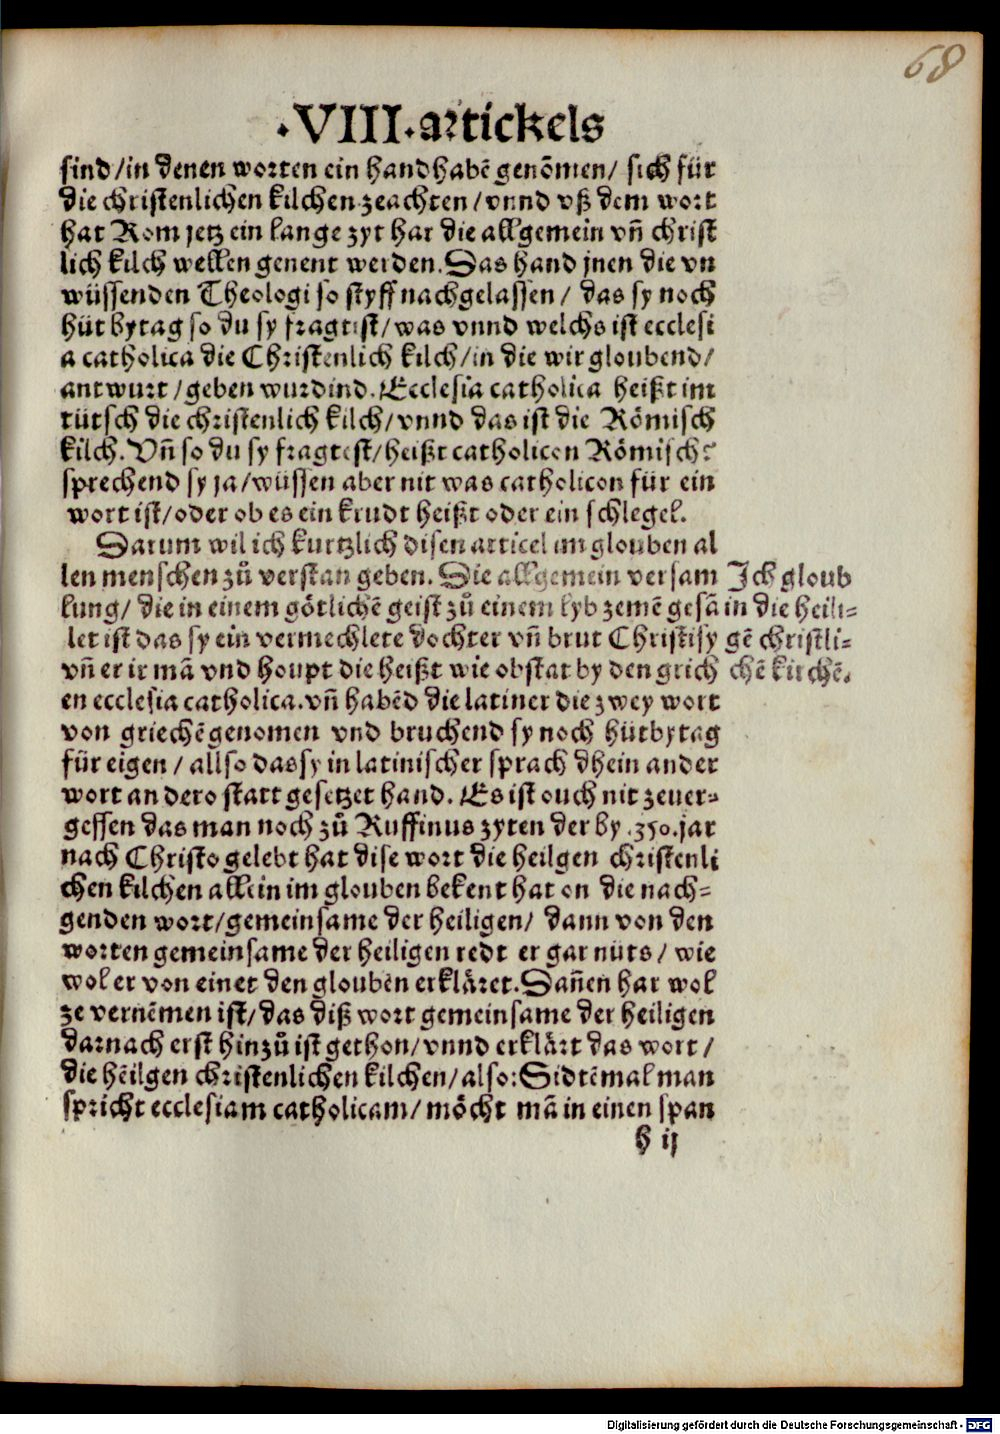 68
·VIII·artickels
sind/in denen worten ein handhabē genōmen/ sich für
die christenlichen kilchen zeachten/vnnd vß dem wort
hat Rom jetz ein lange zyt har die allgemein vñ christ
lich kilch wellen genent werden. Das hand jnen die vn
wüssenden Theologi so styff nachgelassen/ das sy noch
hüt bytag so du sy fragtist/was vnnd welchs ist ecclesi
a catholica die Christenlich kilch/in die wir gloubend/
antwurt/geben wurdind. Ecclesia catholica heißt im
tütsch die christenlich kilch/vnnd das ist die Römisch
kilch. Vñ so du sy fragtest/heißt catholicon Römisch?
sprechend sy ja/wüssen aber nit was catholicon für ein
wort ist/oder ob es ein krudt heißt oder ein schlegel.
Darum wil ich kurtzlich disen articel im glouben al
len menschen zů verstan geben. Die allgemein versam
lung/ die in einem götlichē geist zů einem lyb zemē gesā
let ist das sy ein vermechlete dochter vñ brut Christi sy
vñ er ir mā vnd houpt die heißt wie obstat by den grich
en ecclesia catholica. vñ habēd die latiner die zwey wort
von griechē genomen vnd bruchend sy noch hütbytag
für eigen/ allso das sy in latinischer sprach dhein ander
wort an dero statt gesetzet hand. Es ist ouch nit zeuer-
gessen das man noch zů Ruffinus zyten der by .350. jar
nach Christo gelebt hat dise wort die heilgen christenli
chen kilchen allein im glouben bekent hat on die nach-
genden wort/gemeinsame der heiligen/ dann von den
worten gemeinsame der heiligen redt er gar nüts/ wie
wol er von einet den glouben erkläret. Dañen har wol
ze vernēmen ist/das diß wort gemeinsame der heiligen
darnach erst hinzů ist gethon/vnnd erklärt das wort/
die hēilgen christenlichen kilchen/also: Sidtēmal man
spricht ecclesiam catholicam/möcht mā in einen span
h ij
Ich gloub
in die heili-
gē christli-
chē kirchē.
Digitalisierung gefördert durch die Deutsche Forschungsgemeinschaft - DFG